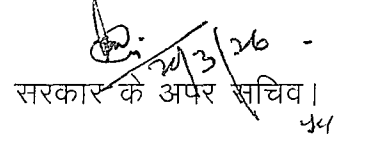 20/3/26
सरकार के अपर सचिव।